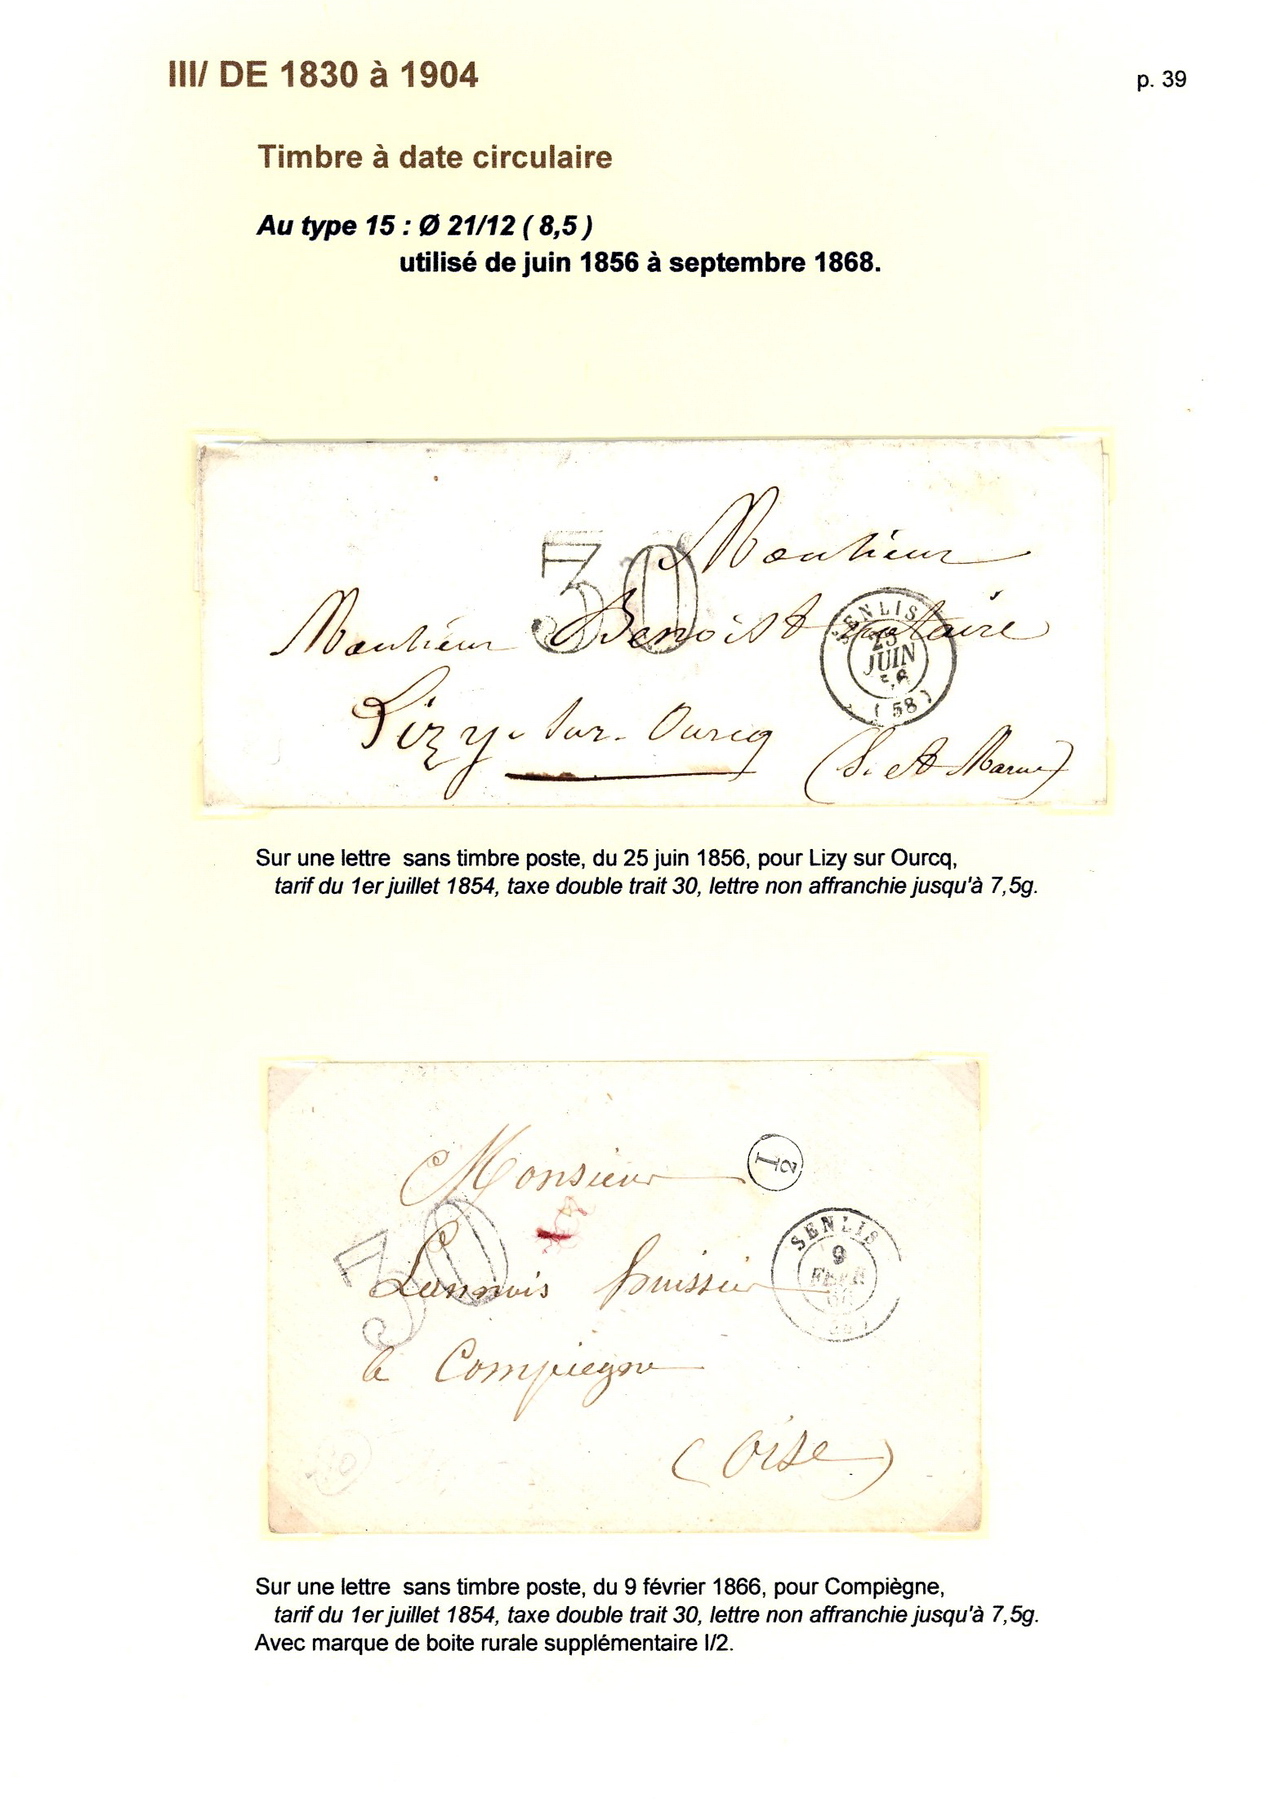 III/ DE 1830 à 1904
p. 39
Timbre à date circulaire
Au type 15 : Ø 21/12 ( 8,5 )
utilisé de juin 1856 à septembre 1868.
30
Monsieur
Monsieur Benoist notaire
Lizy-sur-Ourcq
(S. et Marne)
SENLIS
25
JUIN
56
( 58 )
Sur une lettre sans timbre poste, du 25 juin 1856, pour Lizy sur Ourcq,
tarif du 1er juillet 1854, taxe double trait 30, lettre non affranchie jusqu'à 7,5g.
I 2
Monsieur
30
Lannois huissier
à Compiegne
(Oise)
SENLIS
9
FEVR
66
Sur une lettre sans timbre poste, du 9 février 1866, pour Compiègne,
tarif du 1er juillet 1854, taxe double trait 30, lettre non affranchie jusqu'à 7,5g.
Avec marque de boite rurale supplémentaire I/2.